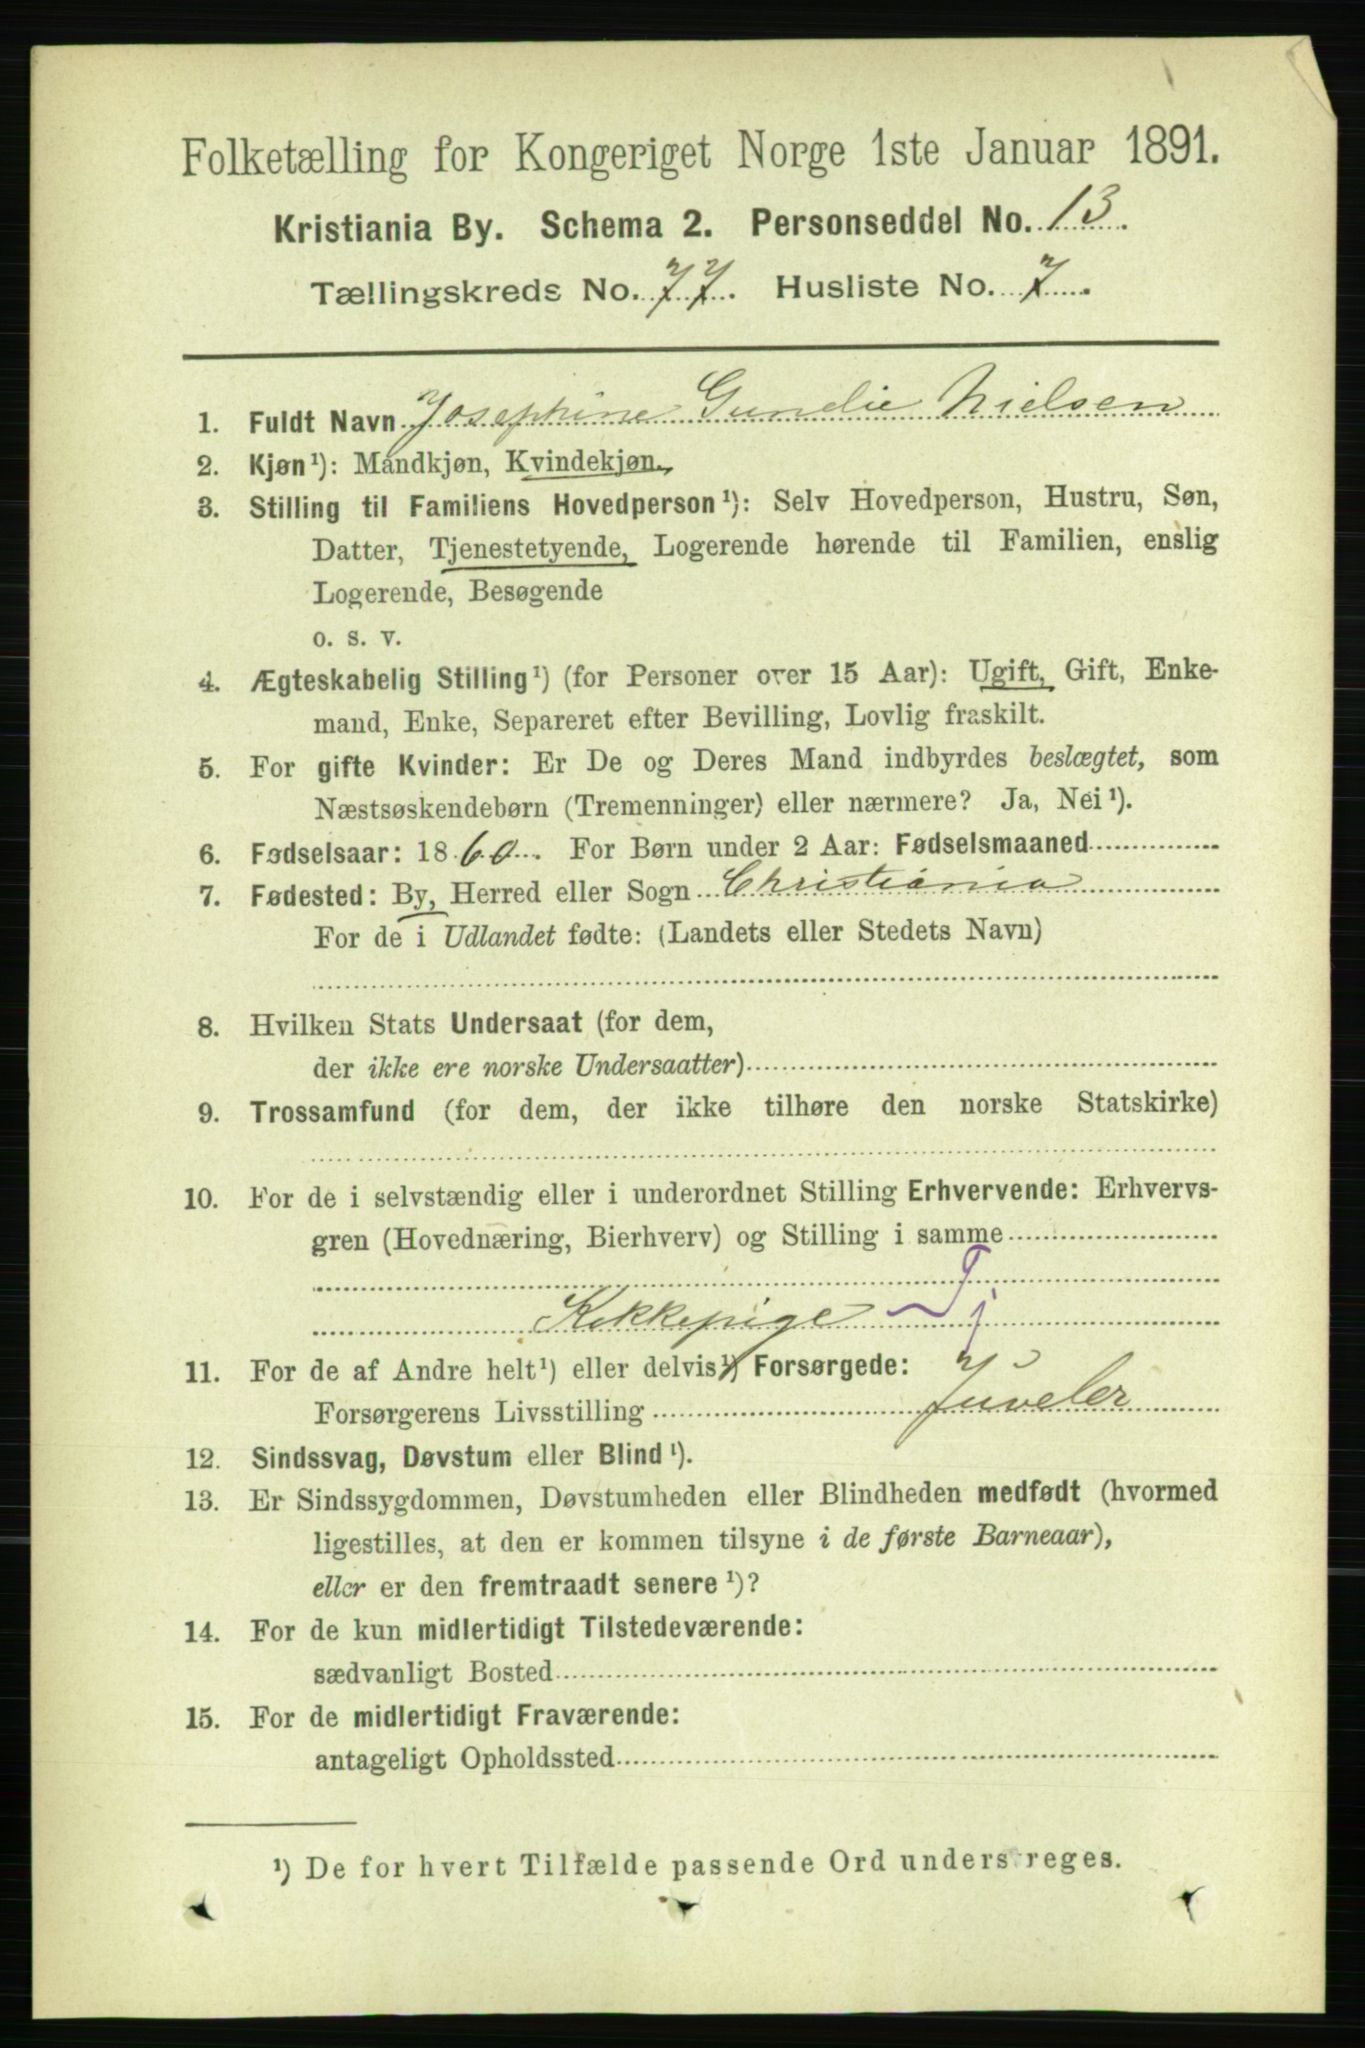 Folketælling for Kongeriget Norge 1ste Januar 1891.
Kristiania By. Schema 2. Personseddel No. 13.
Tællingskreds No. 77. Husliste No. 7.
1. Fuldt Navn Josephine Gundie Nielsen
2. Kjøn¹): Mandkjøn, Kvindekjøn.
3. Stilling til Familiens Hovedperson¹): Selv Hovedperson, Hustru, Søn,
Datter, Tjenestetyende, Logerende hørende til Familien, enslig
Logerende, Besøgende
o. s. v.
4. Ægteskabelig Stilling¹) (for Personer over 15 Aar): Ugift, Gift, Enke-
mand, Enke, Separeret efter Bevilling, Lovlig fraskilt.
5. For gifte Kvinder: Er De og Deres Mand indbyrdes beslægtet, som
Næstsøskendebørn (Tremenninger) eller nærmere? Ja, Nei¹).
6. Fødselsaar: 1860. For Børn under 2 Aar: Fødselsmaaned
7. Fødested: By, Herred eller Sogn Christiania
For de i Udlandet fødte: (Landets eller Stedets Navn)
8. Hvilken Stats Undersaat (for dem,
der ikke ere norske Undersaatter)
9. Trossamfund (for dem, der ikke tilhøre den norske Statskirke)
10. For de i selvstændig eller i underordnet Stilling Erhvervende: Erhvervs-
gren (Hovednæring, Bierhverv) og Stilling i samme
Kokkepige Tj
11. For de af Andre helt¹) eller delvis¹) Forsørgede:
Forsørgerens Livsstilling Juveler
12. Sindssvag, Døvstum eller Blind¹).
13. Er Sindssygdommen, Døvstumheden eller Blindheden medfødt (hvormed
ligestilles, at den er kommen tilsyne i de første Barneaar),
eller er den fremtraadt senere¹)?
14. For de kun midlertidigt Tilstedeværende:
sædvanligt Bosted
15. For de midlertidigt Fraværende:
antageligt Opholdssted
¹) De for hvert Tilfælde passende Ord understreges.